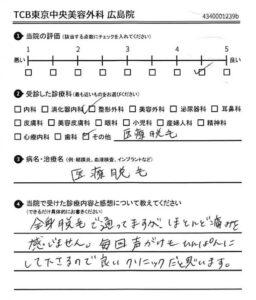 TCB東京中央美容外科 広島院
4340001239b
❶ 当院の評価(該当する点数にチェックを入れてください)
1 2 3 4 5
悪い 良い
❷ 受診した診療科(最も近いものをお選びください)
内科 消化器内科 整形外科 美容外科 泌尿器科 耳鼻科
皮膚科 美容皮膚科 眼科 小児科 産婦人科 精神科
心療内科 歯科 その他 医療脱毛
❸ 病名・治療名(例:糖尿病、血液検査、インプラントなど)
医療脱毛
❹ 当院で受けた診療内容と感想について教えてください
(できるだけ具体的にお書きください)
全身脱毛で通ってますが、ほとんど痛みを
感じません。毎回声がけもひんぱんに
して下さるので良いクリニックだと思います。